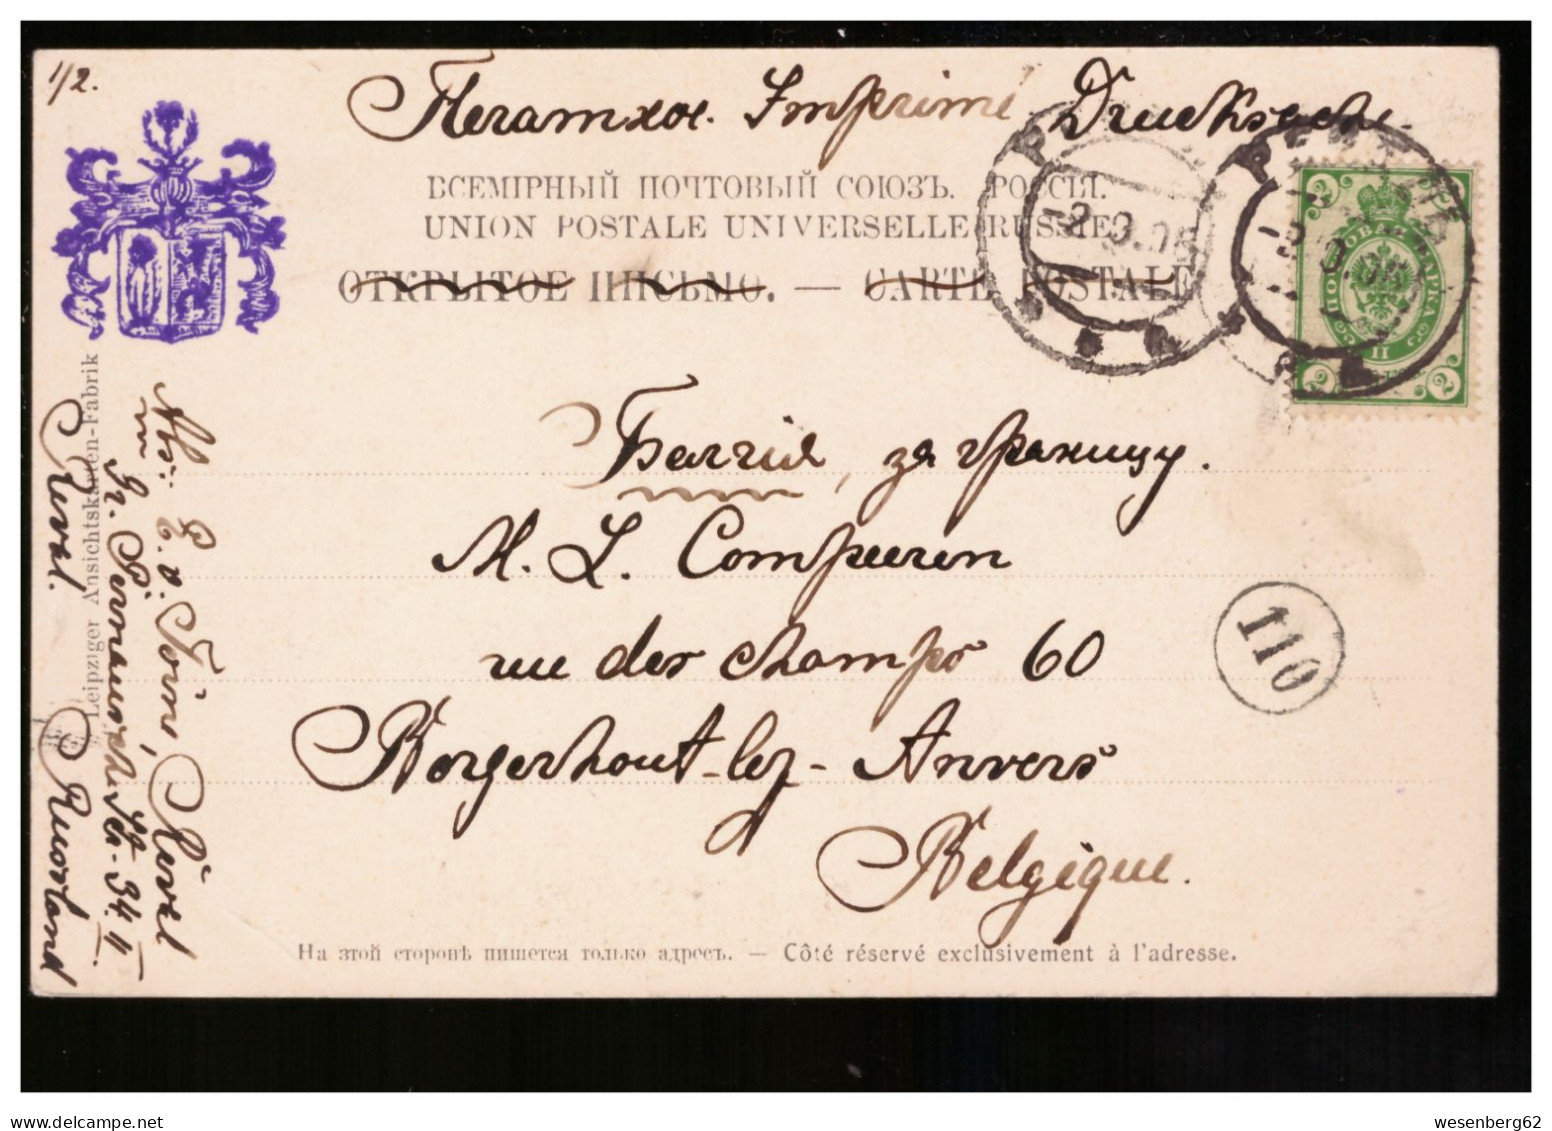 1/2.
Печатное. Imprimé Drucksache.
ВСЕМІРНЫЙ ПОЧТОВЫЙ СОЮЗЪ. РОССІЯ.
UNION POSTALE UNIVERSELLE RUSSIE
ОТКРЫТОЕ ПИСЬМО. — CARTE POSTALE
Бельгія, за границу.
M. L. Compeeren
rue des champs 60
Borgerhout-lez-Anvers
Belgique.
110
На этой сторонѣ пишется только адресъ. — Côté réservé exclusivement à l'adresse.
Leipziger Ansichtskarten-Fabrik
Abs: E. v. Reval
Gr. 34. II
Reval. Russland
ПОЧТОВАЯ МАРКА
2
2
2
wesenberg62